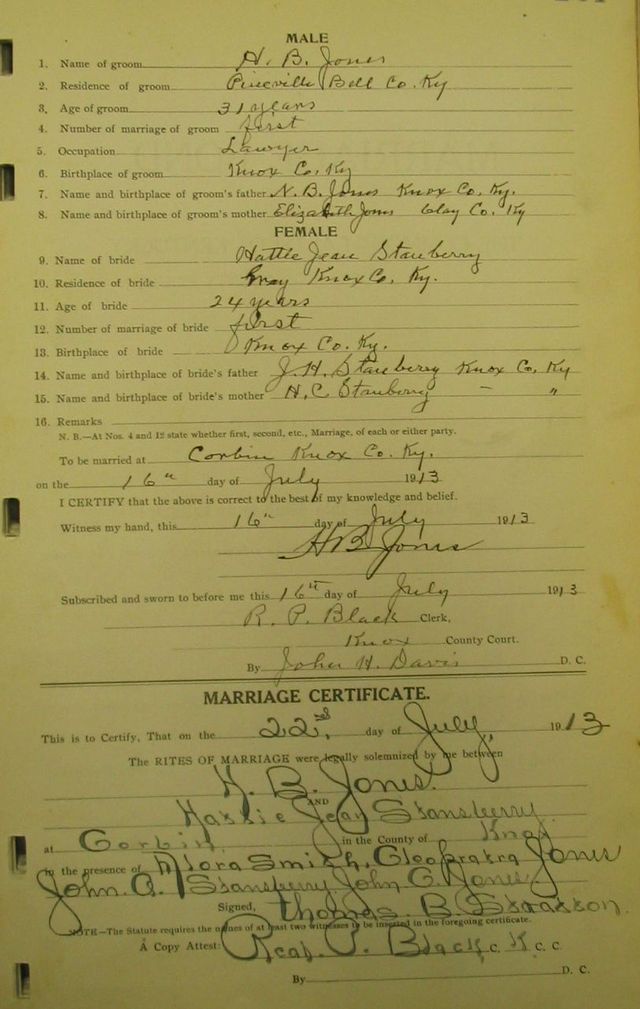 MALE
1. Name of groom H. B. Jones
2. Residence of groom Pineville Bell Co. Ky
3. Age of groom 31 years
4. Number of marriage of groom first
5. Occupation Lawyer
6. Birthplace of groom Knox Co. Ky
7. Name and birthplace of groom's father N. B. Jones Knox Co. Ky.
8. Name and birthplace of groom's mother Elizabeth Jones Clay Co. Ky
FEMALE
9. Name of bride Hattie Jean Stanberry
10. Residence of bride Gray Knox Co. Ky.
11. Age of bride 24 years
12. Number of marriage of bride first
13. Birthplace of bride Knox Co. Ky.
14. Name and birthplace of bride's father J. H. Stanberry Knox Co. Ky
15. Name and birthplace of bride's mother H. C Stanberry — "
16. Remarks
N. B.—At Nos. 4 and 12 state whether first, second, etc., Marriage, of each or either party.
To be married at Corbin Knox Co. Ky.
on the 16" day of July 1913
I CERTIFY that the above is correct to the best of my knowledge and belief.
Witness my hand, this 16" day of July 1913
H B Jones
Subscribed and sworn to before me this 16th day of July 1913
R. P. Black Clerk,
Knox County Court.
By John H. Davis D. C.
MARRIAGE CERTIFICATE.
This is to Certify, That on the 22nd, day of July, 1913
The RITES OF MARRIAGE were legally solemnized by me between
H. B. Jones.
AND
Hattie Jean Stansberry
at Corbin in the County of Knox
in the presence of Flora Smith, Cleopatra Jones
John A. Stansberry John G. Jones
Signed, Thomas B. Stratton.
NOTE—The Statute requires the names of at least two witnesses to be inserted in the foregoing certificate.
A Copy Attest: P. Black C. K. C. C.
By D. C.